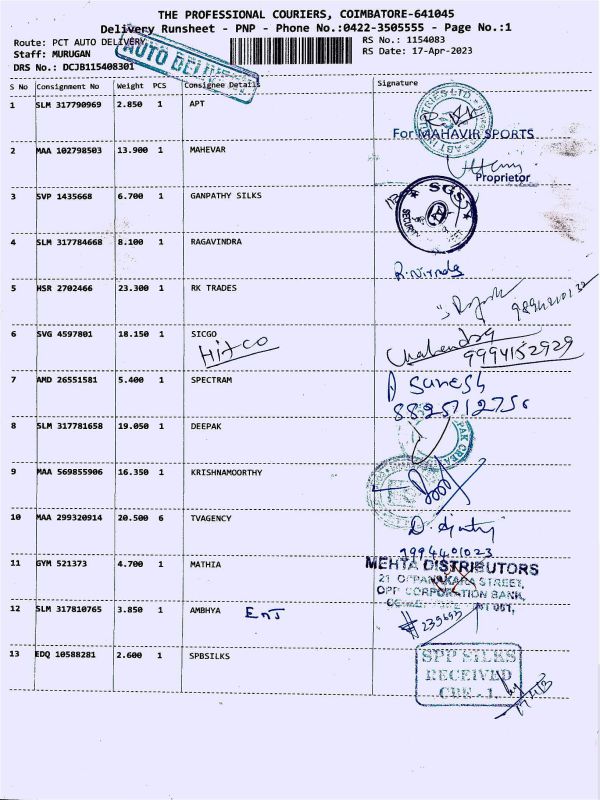 THE PROFESSIONAL COURIERS, COIMBATORE-641045
Delivery Runsheet - PNP - Phone No.:0422-3505555 - Page No.:1
Route: PCT AUTO DELIVERY
Staff: MURUGAN
DRS No.: DCJB115408301
AUTO DELIVERY
RS No.: 1154083
RS Date: 17-Apr-2023
S No Consignment No Weight PCS Consignee Details Signature
1 SLM 317790969 2.850 1 APT
For MAHAVIR SPORTS
2 MAA 102798503 13.900 1 MAHEVAR
Proprietor
3 SVP 1435668 6.700 1 GANPATHY SILKS
SGS
SECURITY
4 SLM 317784668 8.100 1 RAGAVINDRA
5 HSR 2702466 23.300 1 RK TRADES
6 SVG 4597801 18.150 1 SICGO
9994152929
7 AMD 26551581 5.400 1 SPECTRAM
8 SLM 317781658 19.050 1 DEEPAK
9 MAA 569855906 16.350 1 KRISHNAMOORTHY
10 MAA 299320914 20.500 6 TVAGENCY
11 GYM 521373 4.700 1 MATHIA
MEHTA DISTRIBUTORS
21 OPPANAKARA STREET,
OPP CORPORATION BANK,
12 SLM 317810765 3.850 1 AMBHYA
13 EDQ 10588281 2.600 1 SPBSILKS
SPP SILKS
RECEIVED
CBE - 1